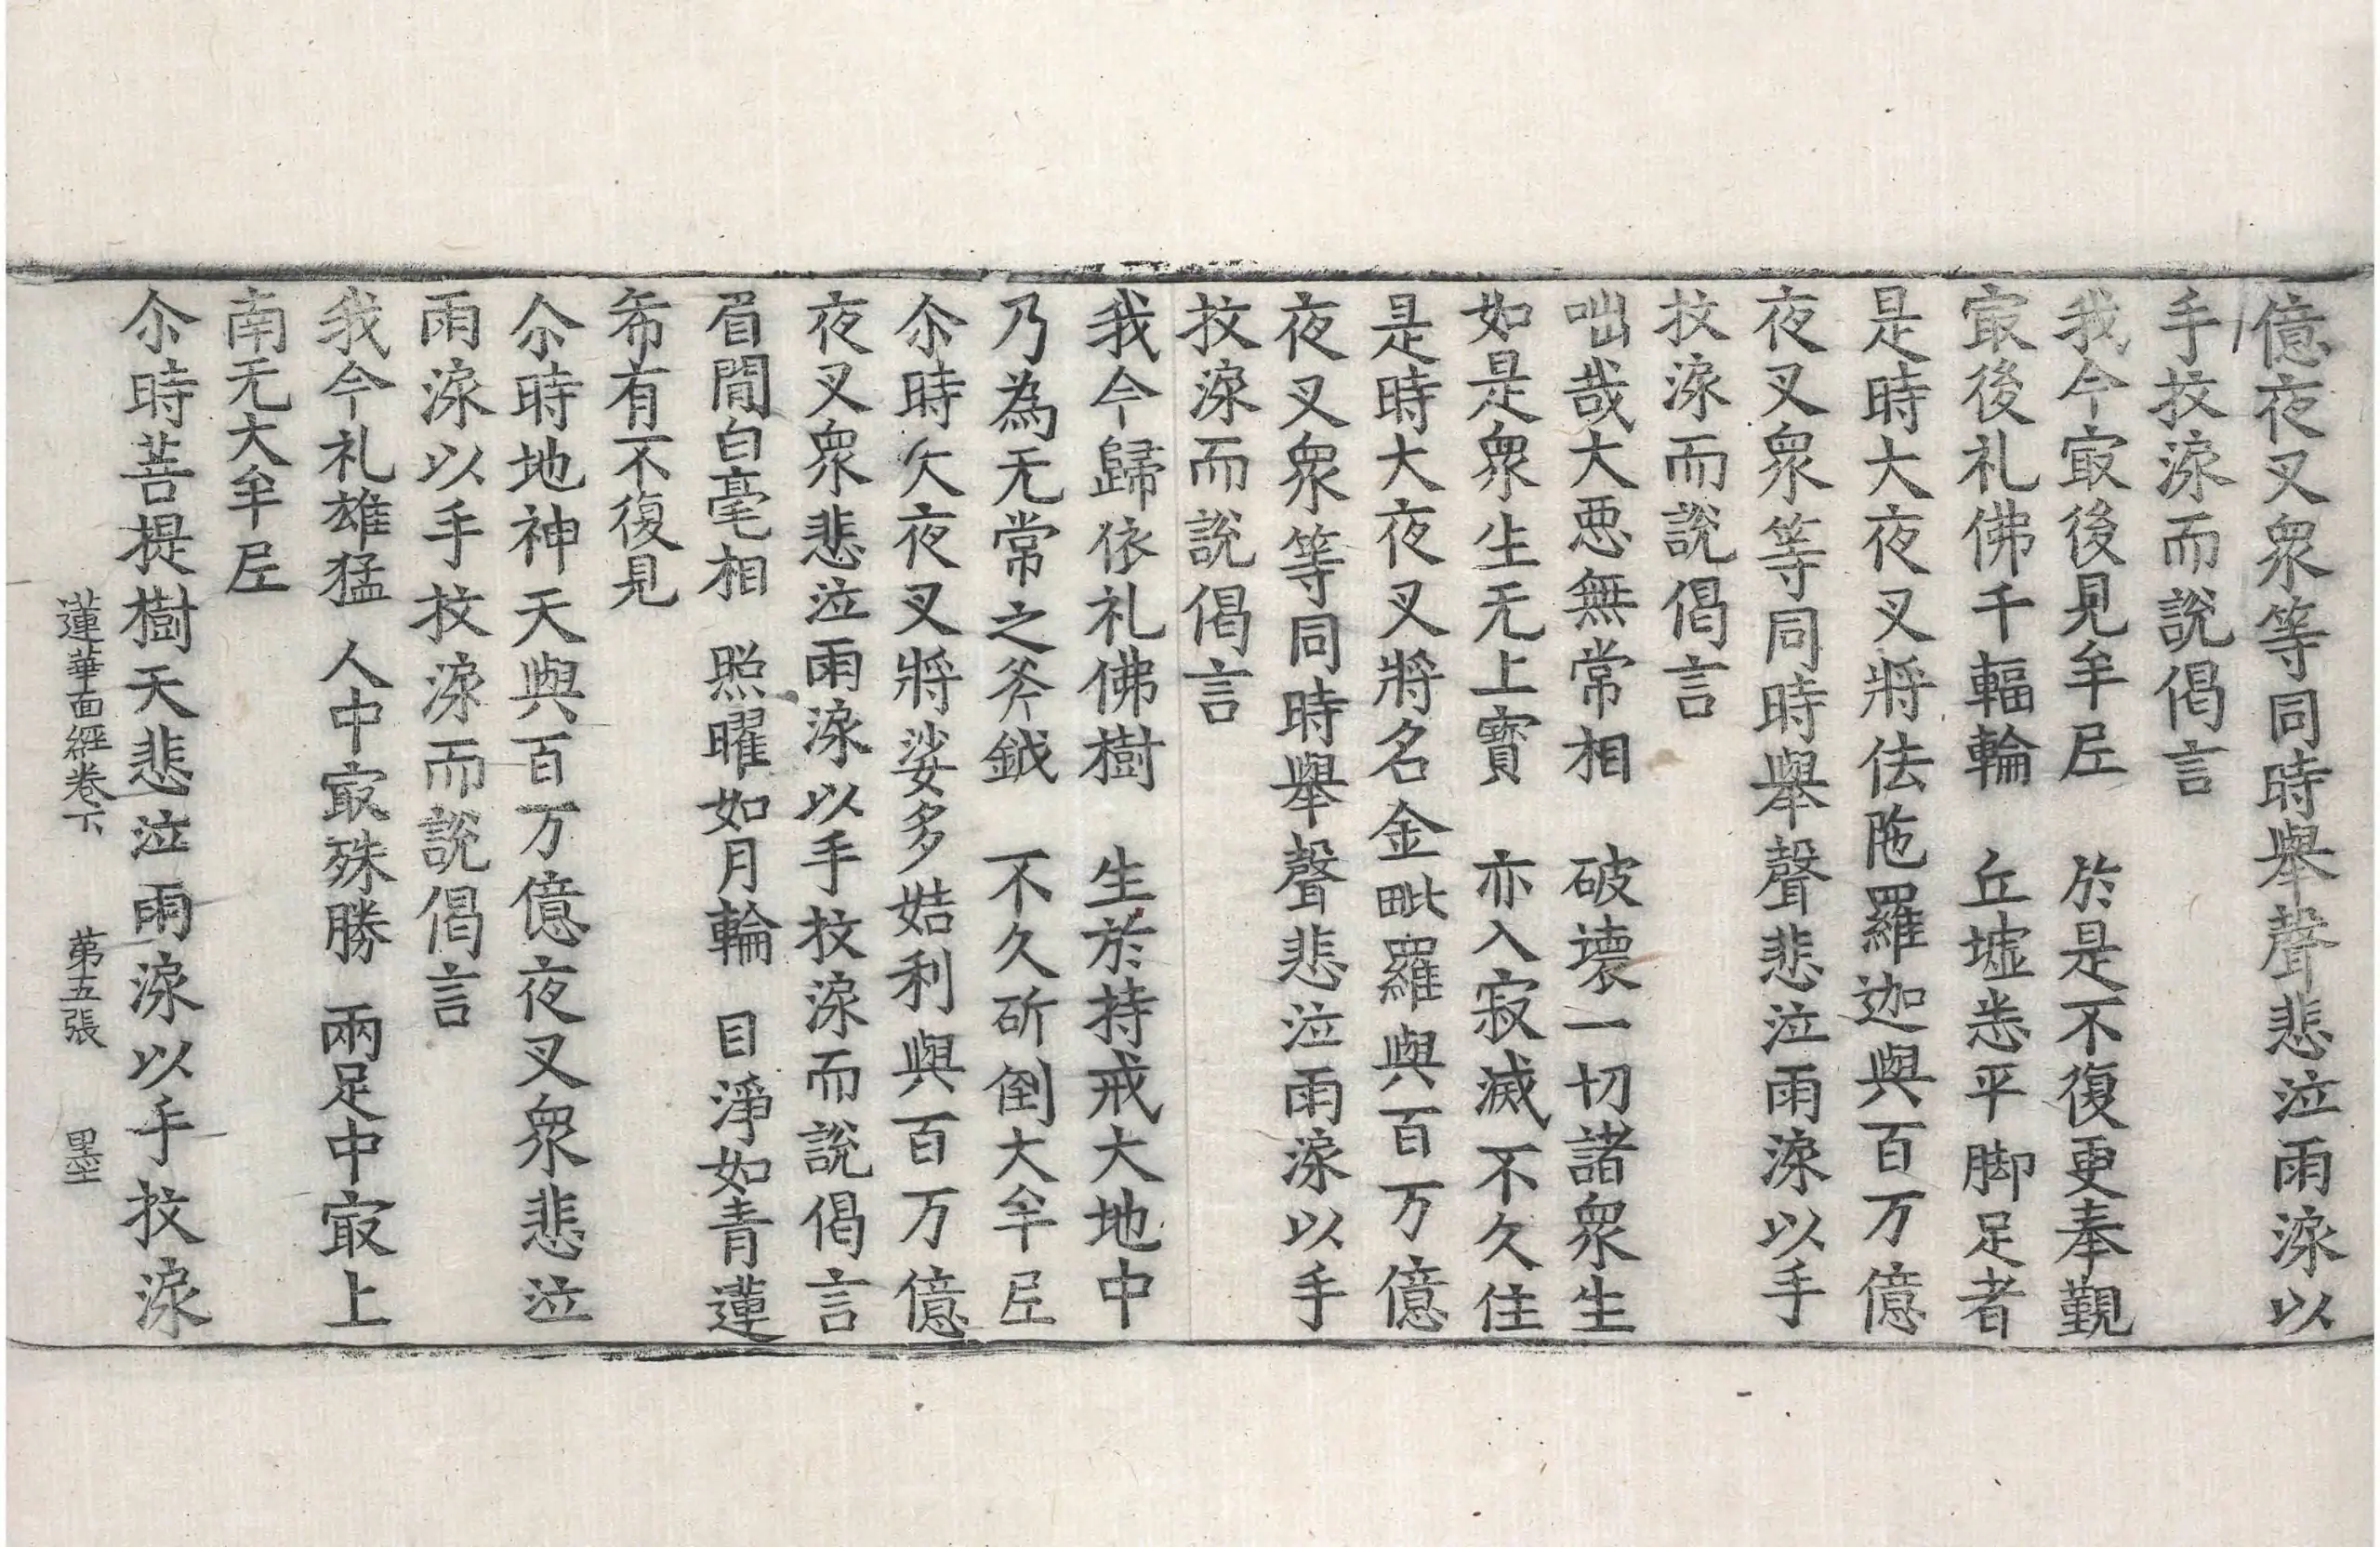 億夜叉衆等同時舉聲悲泣雨淚以
手抆淚而說偈言
我今㝡後見牟𡰱　於是不復更奉覲
㝡後礼佛千輻輪　丘墟悉平脚足者
是時大夜叉將佉陁羅迦與百万億
夜叉衆等同時舉聲悲泣雨淚以手
抆淚而說偈言
咄哉大惡無常相　破壞一切諸衆生
如是衆生无上寶　亦入寂滅不久住
是時大夜叉將名金毗羅與百万億
夜叉衆等同時舉聲悲泣雨淚以手
抆淚而說偈言
我今歸依礼佛樹　生於持戒大地中
乃為无常之斧鉞　不久斫倒大牟𡰱
尒時大夜叉將娑多姞利與百万億
夜叉衆悲泣雨淚以手抆淚而說偈言
眉間白毫相　照曜如月輪　目淨如青蓮
希有不復見
尒時地神天與百万億夜叉衆悲泣
雨淚以手抆淚而說偈言
我今礼雄猛　人中㝡殊勝　兩足中㝡上
南无大牟𡰱
尒時菩提樹天悲泣雨淚以手抆淚
蓮華面經卷下　第五張　墨